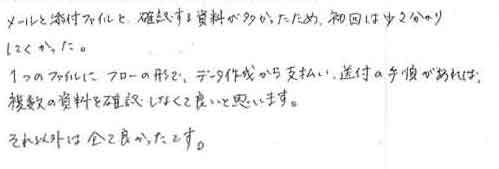 メールと添付ファイルと、確認する資料が多かったため、初回は少々分かり
にくかった。
1つのファイルに フローの形で、データ作成から支払い、送付の手順があれば、
複数の資料を確認しなくて良いと思います。
それ以外は全て良かったです。